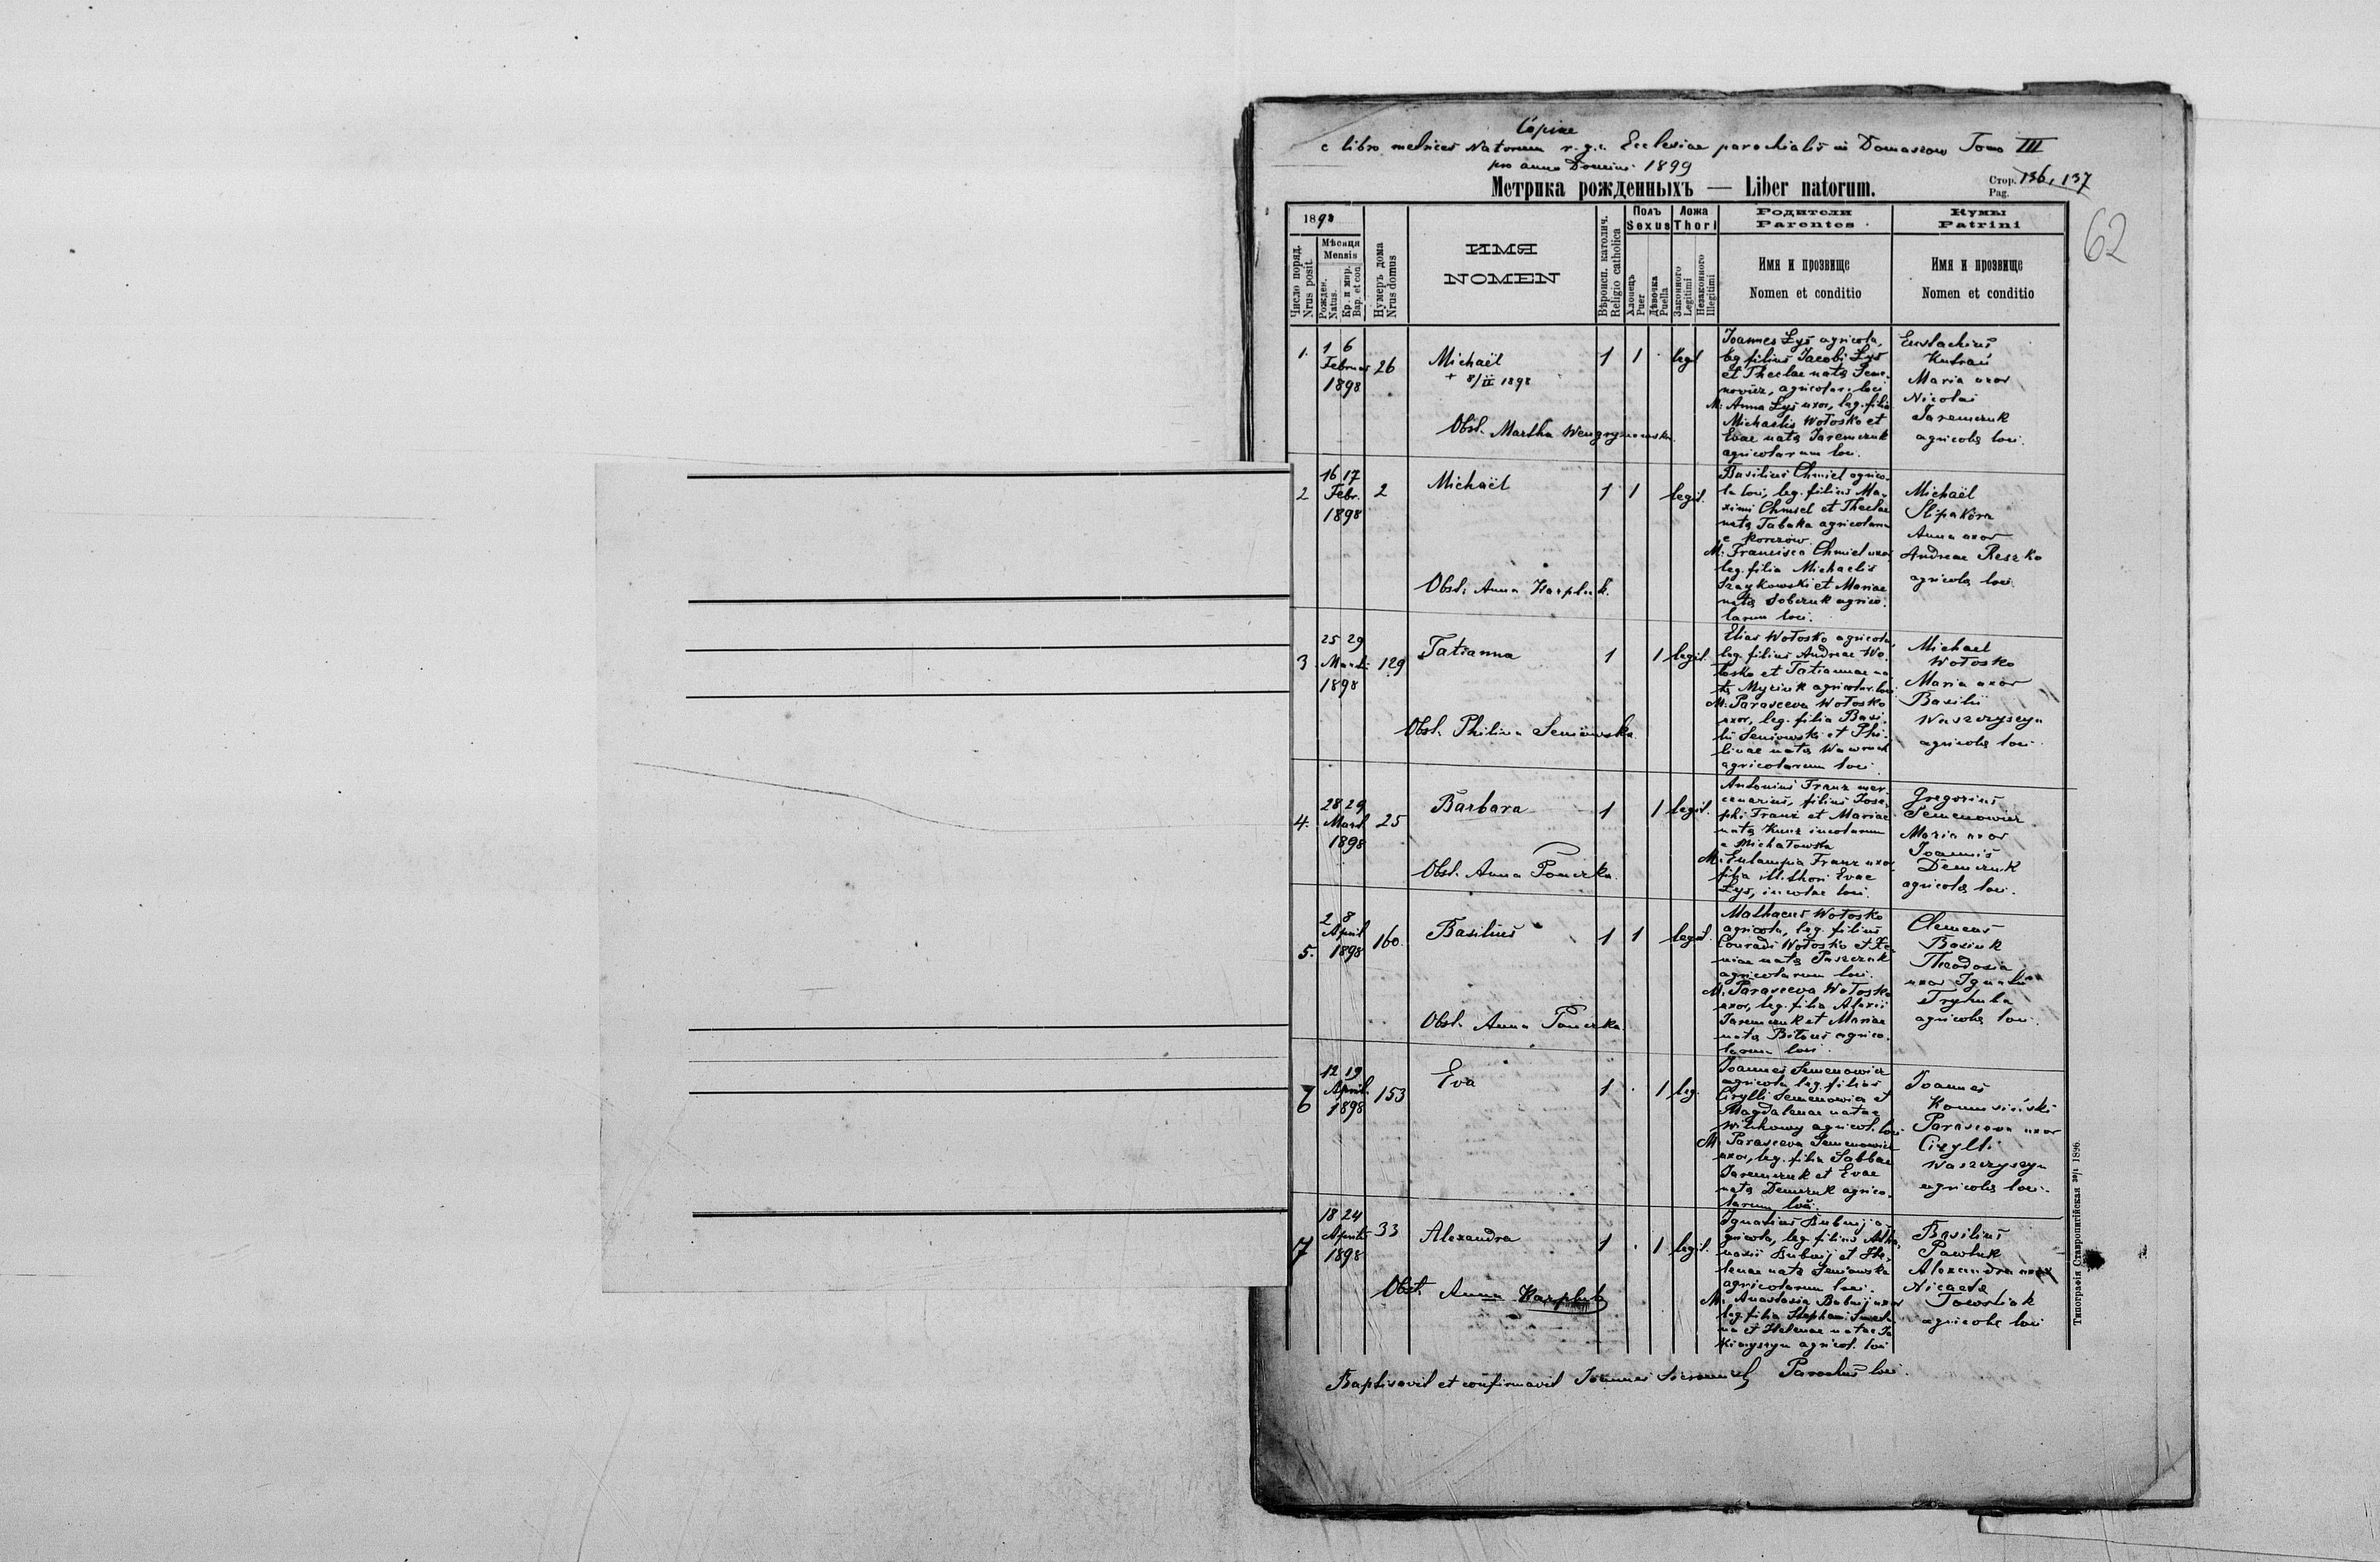 Copiae
e libro metrices Natorum r. g. c. Ecclesiae parochialis in Domaszow Tomo III
pro anno Domini 1899
Метрика рожденныхъ — Liber natorum.
Стор. 136, 137
Pag.
62
1898
Число поряд.
Nrus posit.
Мѣсяця
Mensis
Рожден.
Natus.
Кр. и мир.
Bap. et con.
Нумеръ дома
Nrus domus
ИМЯ
NOMEN
Вѣроисп. католич.
Religio catholica
Полъ
Sexus
Хлопецъ
Puer
Дѣвочка
Puella
Ложа
Thori
Законного
Legitimi
Незаконного
Illegitimi
Родители
Parentes
Имя и прозвище
Nomen et conditio
Кумы
Patrini
Имя и прозвище
Nomen et conditio
1.
1 6
Februar
1898
26
Michaël
+ 8/II 1898
Obst. Martha Wengrynowska
1 1 legit
Joannes Lys agricola,
leg. filius Jacobi Lys
et Theclae natae Seme-
nowicz, agricolar. loci
M: Anna Lys uxor, leg. filia
Michaelis Wołosko et
Evae natae Jaremczuk
agricolarum loci.
Eustachius
Maria uxor
Nicolai
Jaremczuk
agricolae loci.
2
16 17
Febr.
1898
2
Michaël
Obst: Anna Karpluk.
1 1 legit.
Basilius Chmiel agrico-
la loci, leg. filius Ma-
ximi Chmiel et Theclae
natae Tabaka agricolarum
e Korczów.
M: Francisca Chmiel uxor
leg. filia Michaelis
et Mariae
natae Sobczuk agrico-
larum loci.
Michaël
Anna uxor
Andreae Reszko
agricolae loci.
3
25 29
Marti
1898
129
Tatianna
Obst. Philina Seniowska
1 1 legit.
Elias Wołosko agricola
leg. filius Andreae Wo-
łosko et Tatiannae na-
tae agricolar. loci
M: Parasceva Wołosko
uxor, leg. filia Basi-
lii Seniowski et Phi-
linae natae Wawruch
agricolarum loci
Michael
Wołosko
Maria uxor
Basilii
Waszczyszyn
agricolae loci
4.
28 29
Mart
1898
25
Barbara
Obst. Anna Ponczka
1 1 legit.
Antonius Franz mer-
cenarius, filius Jose-
phi Franz et Mariae
natae Kunz incolarum
e Michałowka
M: Eulampia Franz uxor
filia ill. thori Evae
Lys, incolae loci.
Gregorius
Semenowicz
Maria uxor
Joannis
Demczuk
agricolae loci.
5.
2 8
April
1898
160
Basilius
Obst. Anna Ponczka
1 1 legit.
Mathaeus Wołosko
agricola, leg. filius
Conradi Wołosko et Xe-
niae natae Paszczuk
agricolarum loci.
M. Parasceva Wołosko
uxor, leg. filia Alexii
Jaremczuk et Mariae
natae Biłous agrico-
larum loci
Clemens
Basiuk
Theodosia
uxor Ignatii
Tryhuba
agricolae loci.
6
12 19
April.
1898
153
Eva
1 1 leg.
Joannes Semenowicz
agricola leg. filius
Cirylli Semenowicz et
Magdalenae natae
agricol. loci
M: Parasceva Semenowicz
uxor, leg. filia Sabbae
Jaremczuk et Evae
natae Demczuk agrico-
larum loci.
Joannes
Parasceva uxor
Cirylli
Waszczyszyn
agricolae loci.
7
18 24
Aprili
1898
33
Alexandra
Obst. Anna Karpluk
1 1 legit.
Ignatius Bubnij a-
gricola, leg. filius Atha-
nasii Bubnij et He-
lenae natae Seniowska
agricolarum loci.
M. Anastasia Bubnij uxor
leg. filia Stephani
et Helenae natae Ja-
kimyszyn agricol. loci
Basilius
Pawluk
Alexandra uxor
Nicetae
agricolae loci
Baptisavit et confirmavit Joannes Parochus loci.
Типографія Ставропигійская 1896.